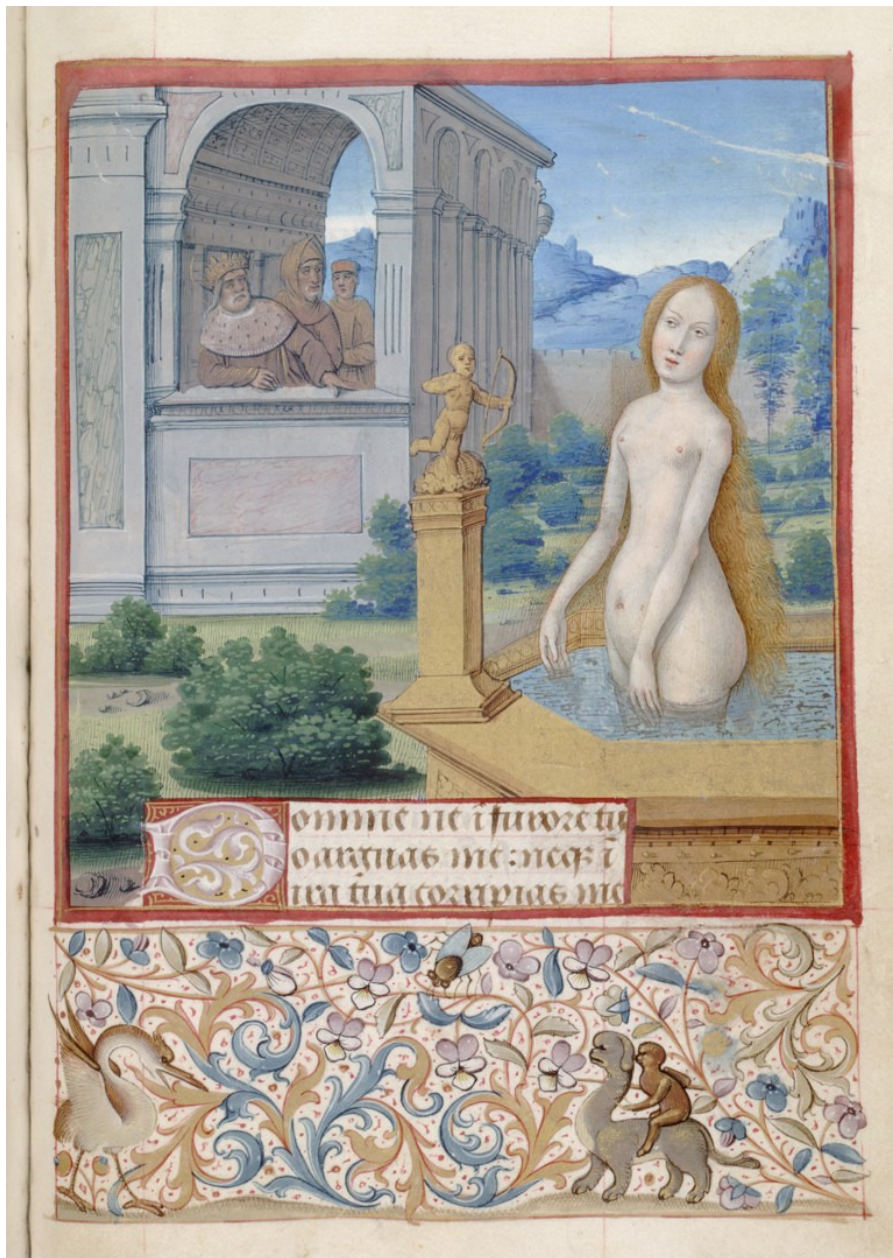 Domine ne ī furore tu
o arguas me: neqꝫ ī
ira tua corripias me